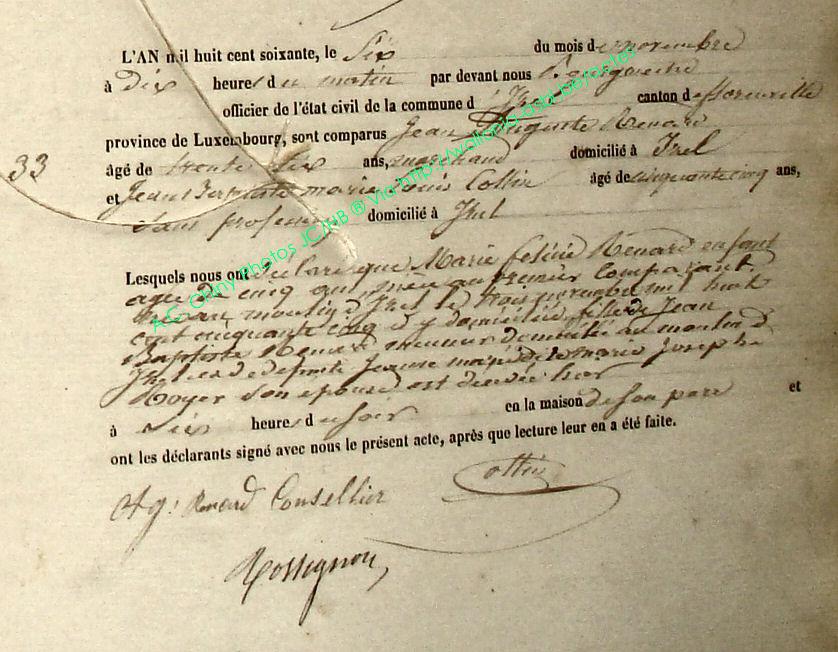 L'AN mil huit cent soixante, le Six du mois de novembre
à Dix heures du matin par devant nous Bourgmestre
officier de l'état civil de la commune d'Izel canton de florenville
province de Luxembourg, sont comparus Jean Auguste Renard
33
âgé de trente six ans, marchand domicilié à Izel
et Jean Baptiste marie Collin âgé de cinquante cinq ans,
Sans profession domicilié à Izel
Lesquels nous ont déclaré que Marie feline Renard enfant
agée de cinq ans, au premier Comparant,
née au moulin d'Izel le trois novembre mil huit
cent cinquante cinq et y domiciliée, fille de Jean
Baptiste Renard meunier domicilié au moulin d'
Izel et de marie Josephe
Royer Son epouse, est décédée hier
à Six heures du soir en la maison de son pere et
ont les déclarants signé avec nous le présent acte, après que lecture leur en a été faite.
Ag: Renard Conseiller Collin
Rossignon
AC Chiny Photos JC/HB ® Via http://wallonia-asbl-bey.actes